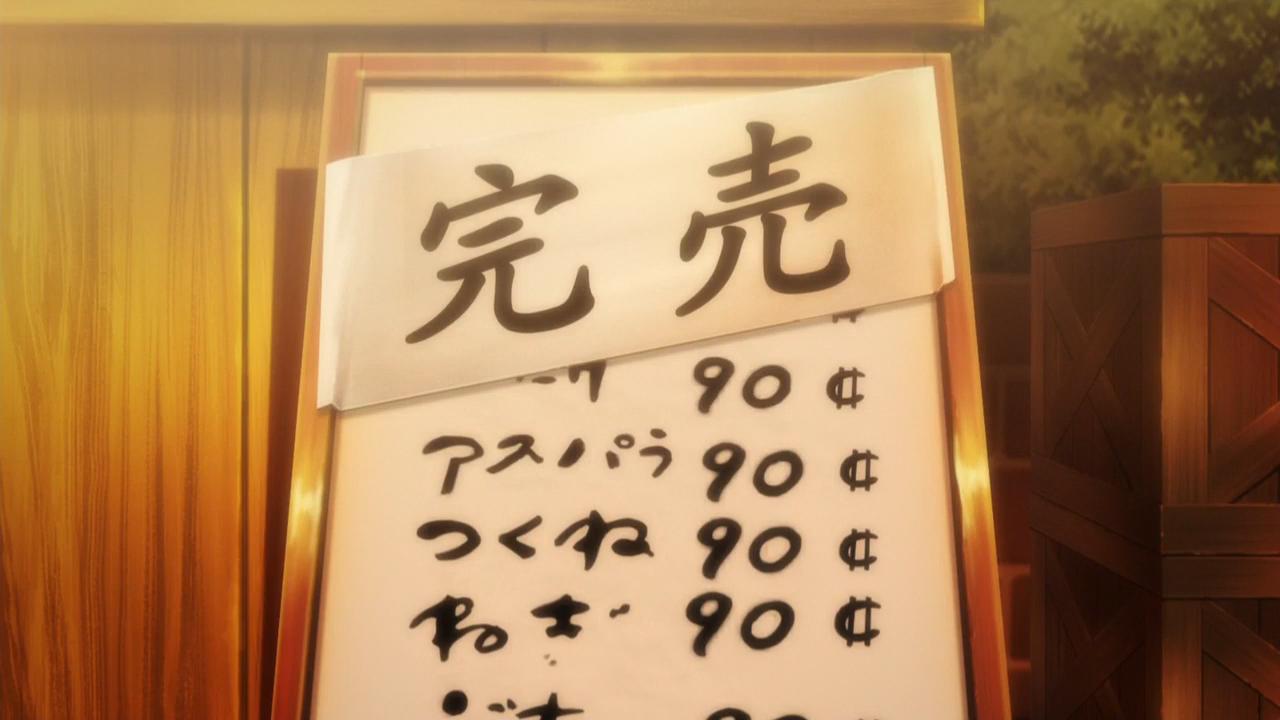 完売
90 ₡
アスパラ 90 ₡
つくね 90 ₡
ねぎ 90 ₡